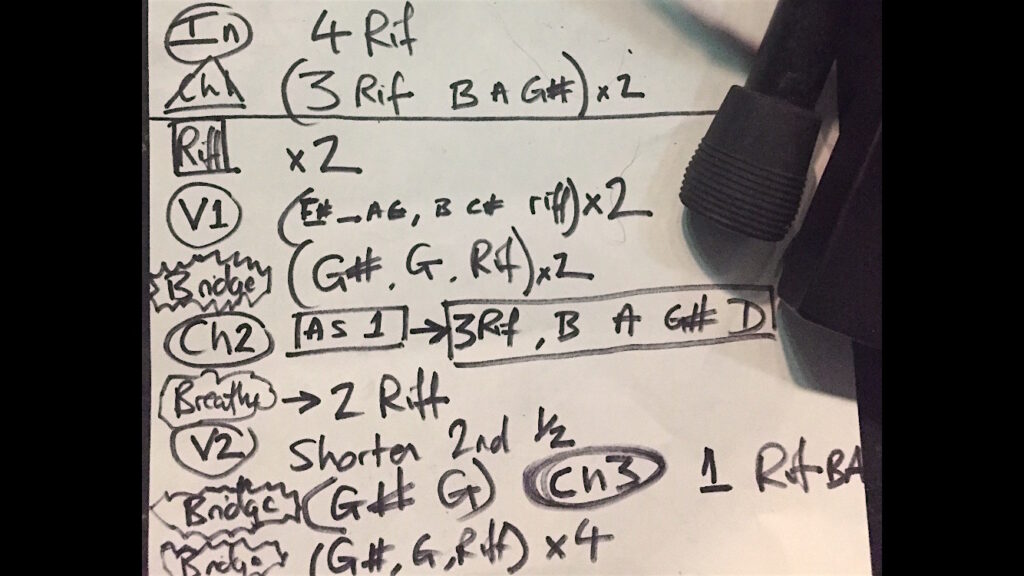 In 4 Rif
Ch1 (3 Rif B A G#) x2
Riff x2
V1 (E# _ AG, B C# riff) x2
Bridge (G#. G. Rif) x2
Ch2 AS 1 → 3Rif, B A G# D
Breathe → 2 Riff
V2 Shorten 2nd 1/2
Bridge (G# G) Ch3 1 Rif BA
Bridge (G#, G, Riff) x4